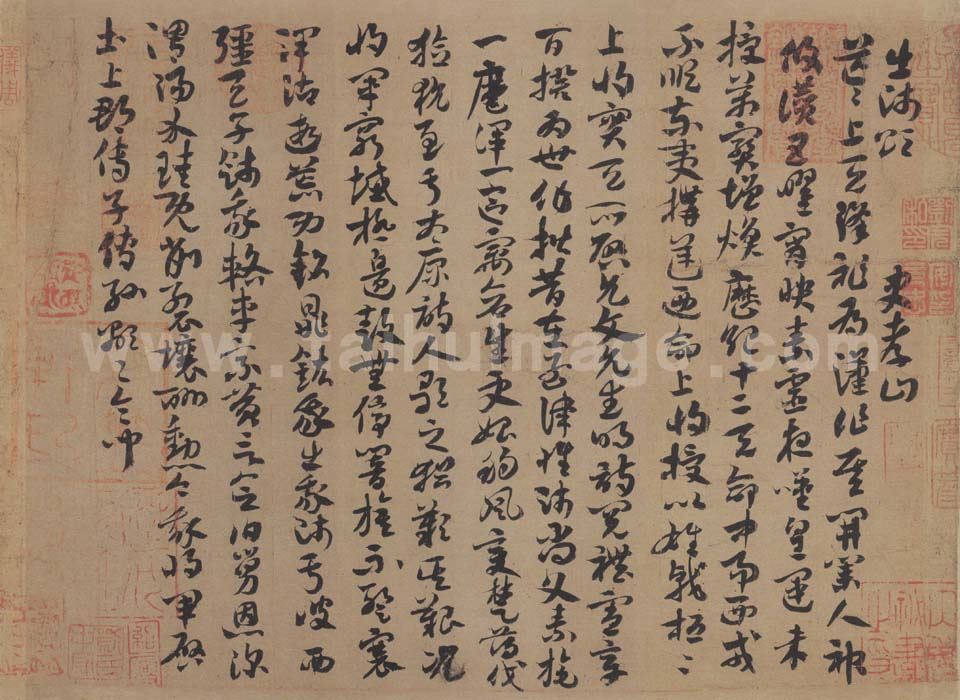 出師頌 史孝山
茫茫上天降祚為漢作基開業人神
攸讚五曜宵映素靈夜嘆皇運未
授萬寶增煥歷紀十二天命中易西戎
不順東夷構逆乃命上將授以雄戟桓桓
上將寔天所啟允文允武明詩閱禮憲章
百揆為世作楷昔在孟津惟師尚父素旄
一麾渾一區寓蒼生更始朔風變楚薄伐
獫狁至于太原詩人歌之猶歎其艱況
我將軍窮域極邊鼓無停響旌不蹔褰
澤沾遐荒功銘鼎鉉我出我師于彼西
疆天子餞我路車乘黃言念伯舅恩深
渭陽介珪既削裂壤酬勳今我將軍啟
土上郡傳子傳孫顯顯令問
www.taihuimage.com